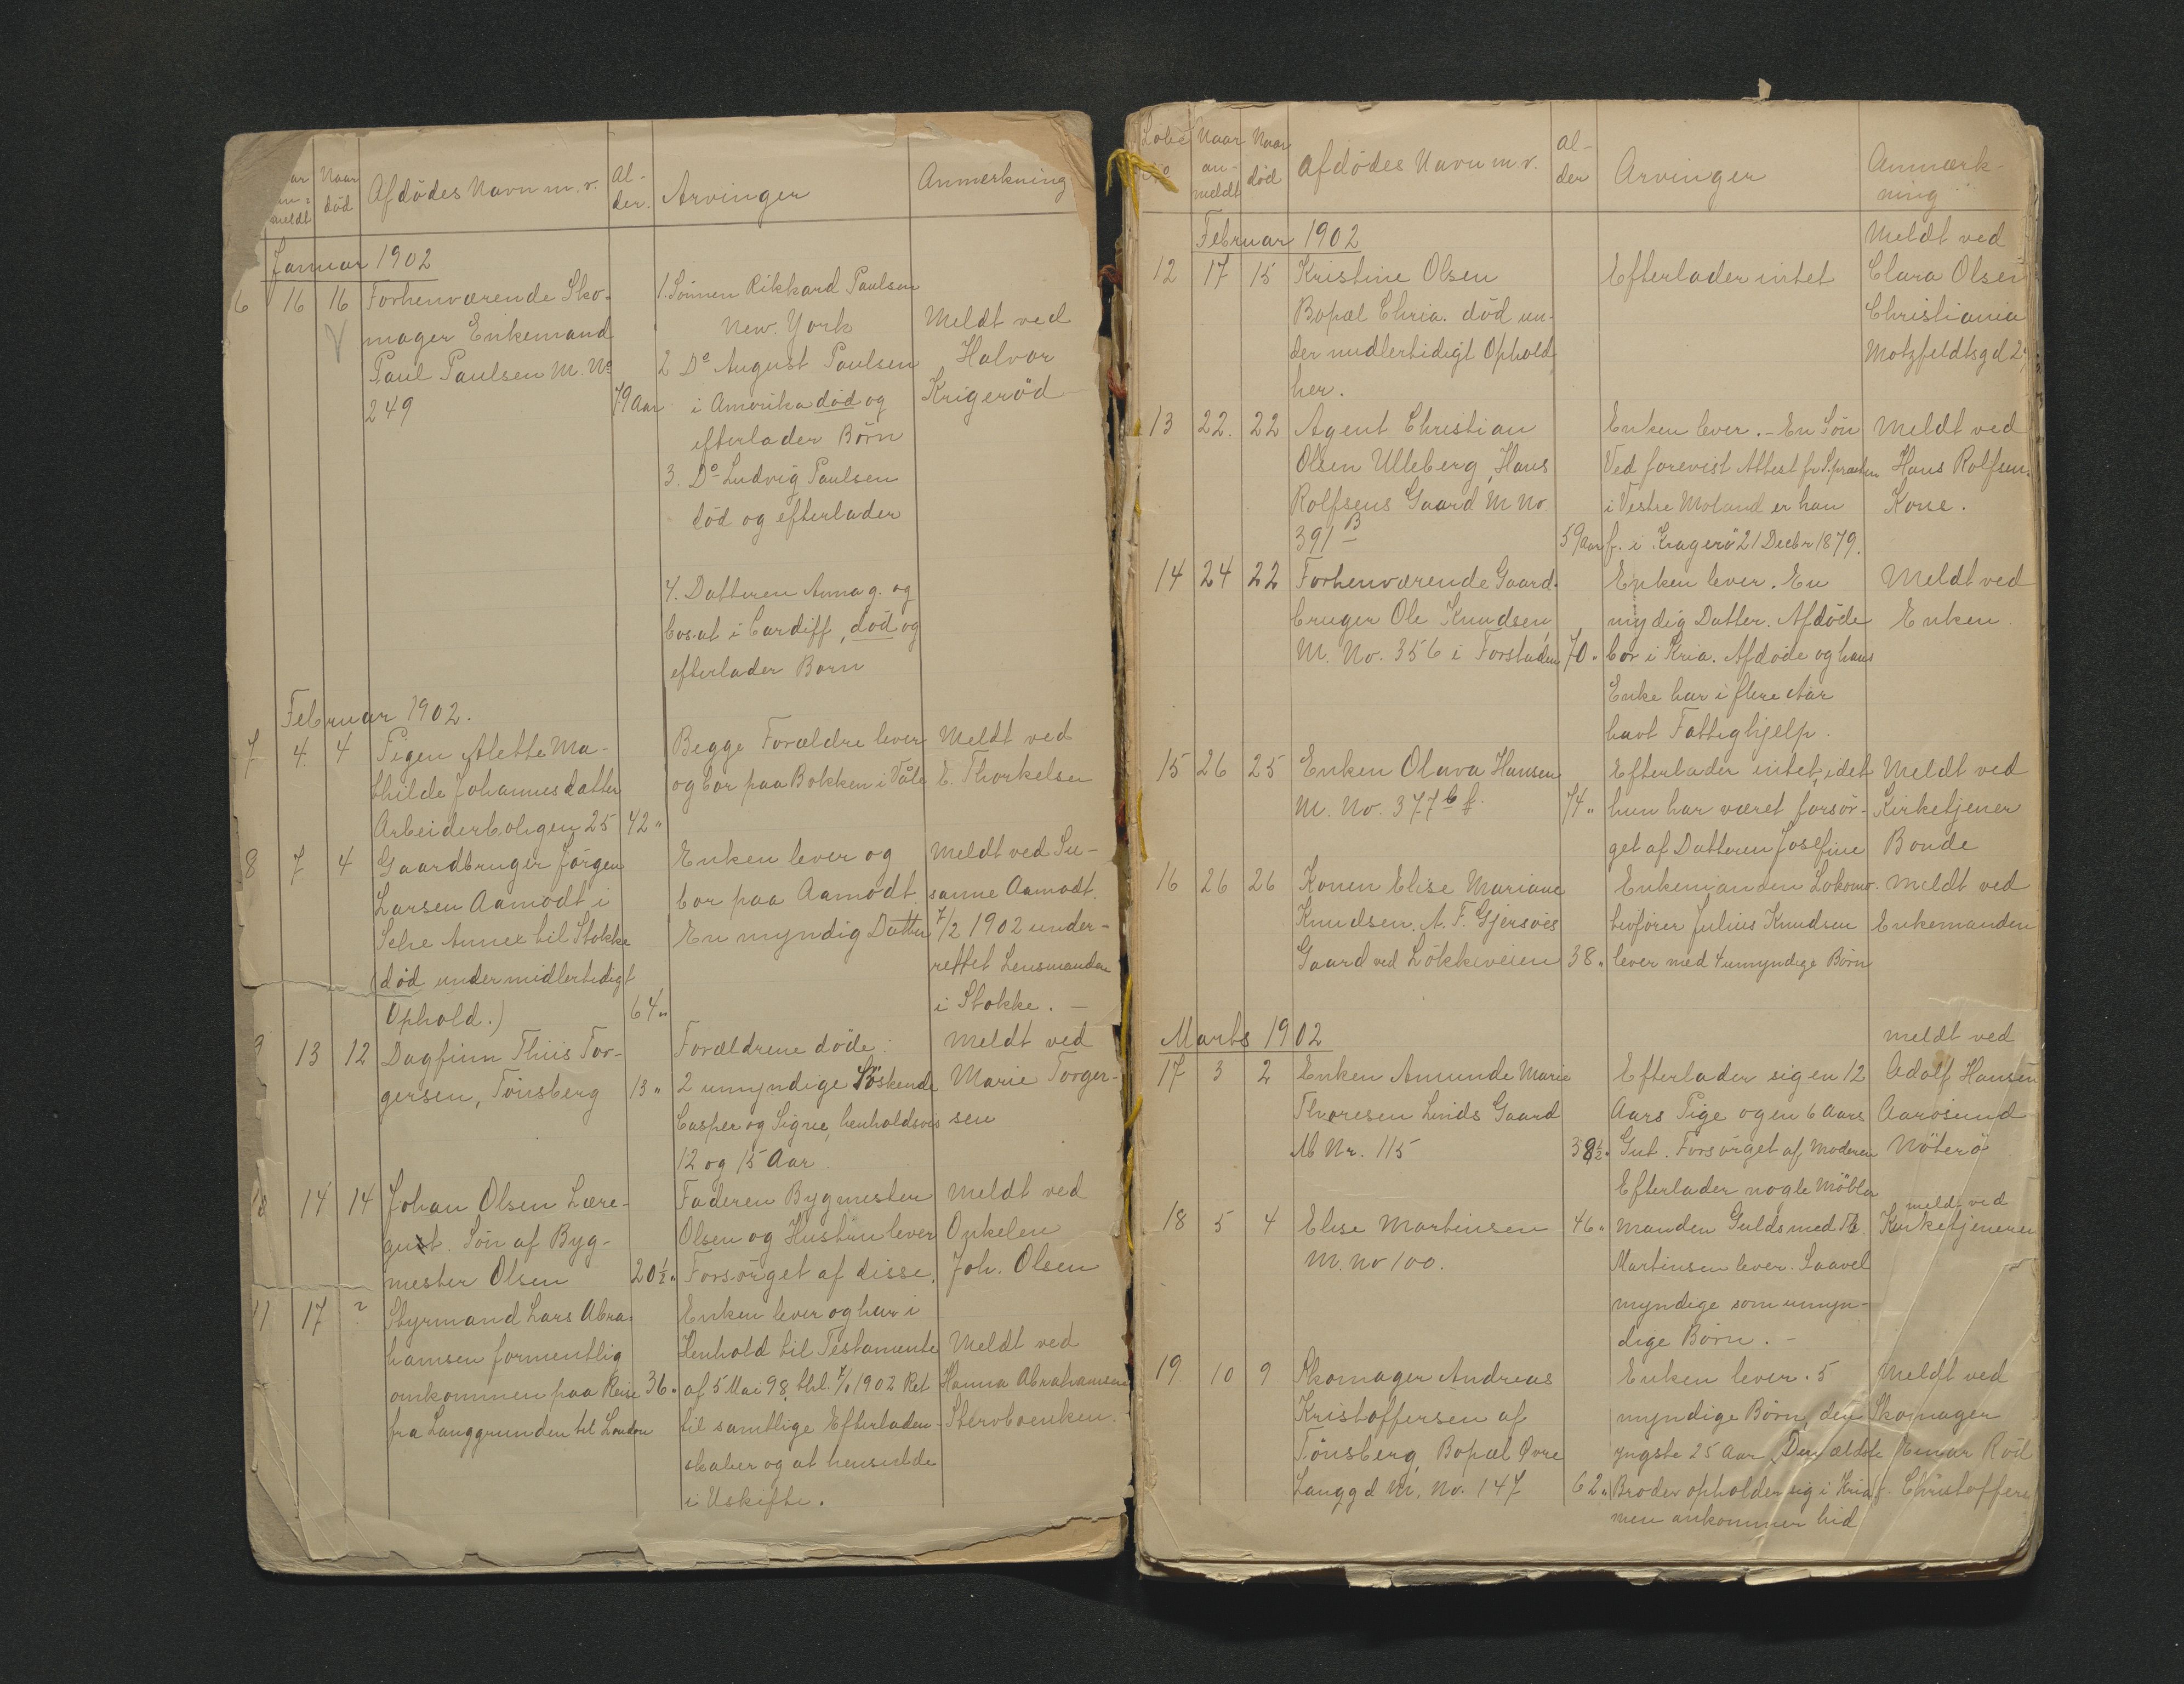 Naar
død
Afdödes Navn m. v.
Al-
der.
Arvinger
Anmerkning
meldt
Januar 1902
6 16 16 Forhenværende Sko-
mager Enkemand
Paul Paulsen M. No
249
79 Aar
1. Sönnen Rikkard Paulsen
New. York
2 Do August Paulsen
i Amerika död og
efterlader Börn
3. Do Ludvig Paulsen
död og efterlader
4. Datteren Anna g. og
bosat i Cardiff, död og
efterlader Born
Meldt ved
Halvor
Krigeröd
Februar 1902.
7 4. 4 Pigen Alette Ma-
thilde Johannesdatter
Arbeiderboligen 25 42 "
Begge Forældre lever
og bor paa Bakken i Våle
Meldt ved
E. Thorkelsen
8 7 4 Gaardbruger Jörgen
Larsen Aamodt i
Annex til Stokke
(död under midlertidigt
Ophold.) 64 "
Enken lever og
bor paa Aamodt.
En myndig Datter
Meldt ved Su-
sanne Aamodt.
7/2 1902 under-
rettet Lensmanden
i Stokke. —
9 13 12 Dagfinn Thiis Tor-
gersen, Tönsberg 13 "
Forældrene döde.
2 umyndige Söskende
Casper og Signe, henholdsvis
12 og 15 Aar.
Meldt ved
Marie Torger-
sen
14 14 Johan Olsen Lære-
gut. Sön af Byg-
mester Olsen 20 1/2 "
Faderen Bygmester
Olsen og Hustru lever
Forsörget af disse.
Meldt ved
Onkelen
Joh. Olsen
11 17 ? Styrmand Lars Abra-
hamsen formentlig
omkommen paa Reise 36 "
fra Langgrunden til London
Enken lever og har i
Henhold til Testamente
af 5 Mai 98 1902 Ret
til samtlige Efterladen-
skaber og at hensidde
i Uskifte.
Meldt ved
Hanna Abrahamsen
Stervboenken.
Löbe
No
Naar
an-
meldt
Naar
död
Afdödes Navn m. v.
Al-
der
Arvinger
Anmærk-
ning
Februar 1902
12 17 15 Kristine Olsen
Bopæl Chria. död un-
der midlertidigt Ophold
her.
Efterlader intet
Meldt ved
Clara Olsen
Christiania
Motzfeldtsgd 2
13 22. 22 Agent Christian
Olsen Ulleberg, Hans
Rolfsens Gaard M No.
391 B 59 Aar
Enken lever. – En Sön
Ved forevist Attest fr S.præsten
i Vestre Moland er han
f. i Kragerö 21 Decbr 1879.
Meldt ved
Hans Rolfsens
Kone.
14 24 22 Forhenværende Gaard-
bruger Ole Knudsen,
M. No. 356 i Forstaden 70 "
Enken lever. En
myndig Datter. Afdöde
bor i Kria. Afdöde og hans
Enke har i flere Aar
havt Fattighjelp.
Meldt ved
Enken
15 26 25 Enken Olava Hansen
M. No. 377 b f. 74 "
Efterlader intet, idet
hun har været forsör-
get af Datteren Josefine
Meldt ved
Kirketjener
Bonde
16 26 26 Konen Elise Mariane
Knudsen, A. F. Gjersöes
Gaard ved Lökkeveien 38 "
Enkemanden Lokomo-
tivförer Julius Knudsen
lever med 4 umyndige Börn
Meldt ved
Enkemanden
Marts 1902
17 3 2 Enken Amunde Marie
Thoresen Linds Gaard
M Nr. 115 38 1/2 "
Efterlader sig en 12
Aars Pige og en 6 Aars
Gut. Forsörget af Moderen
Efterlader nogle Möbler
meldt ved
Adolf Hansen
Aarösund
Nöterö
18 5 4 Elise Martinsen 46 "
M. No 100.
Manden Guldsmed Th.
Martinsen lever. Saavel
myndige som umyn-
dige Börn. –
meldt ved
Kirketjeneren
19 10 9 Skomager Andreas
Kristoffersen af
Tönsberg, Bopæl Övre
Langgd M. No. 147 62 "
Enken lever. 5
myndige Börn, den
yngste 25 Aar. Den ældste
Broder opholder sig i Kria
men ankommer hid
Meldt ved
Skomager
Einar Röd
Christoffers